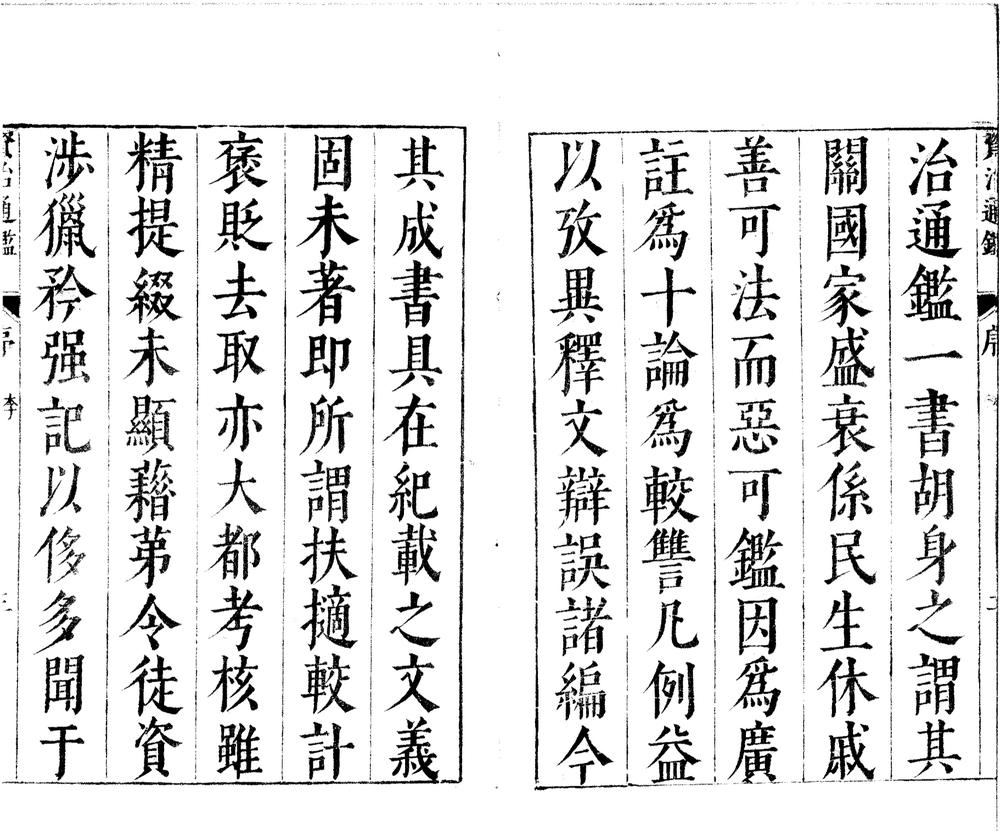 資治通鑑 序
治通鑑一書胡身之謂其
關國家盛衰係民生休戚
善可法而惡可鑑因爲廣
註爲十論爲較讐凡例益
以攷異釋文辯誤諸編今
其成書具在紀載之文義
固未著即所謂扶擿較計
褒貶去取亦大都考核雖
精提綴未顯藉苐令徒資
涉獵矜强記以侈多聞于
資治通鑑 序 李 三